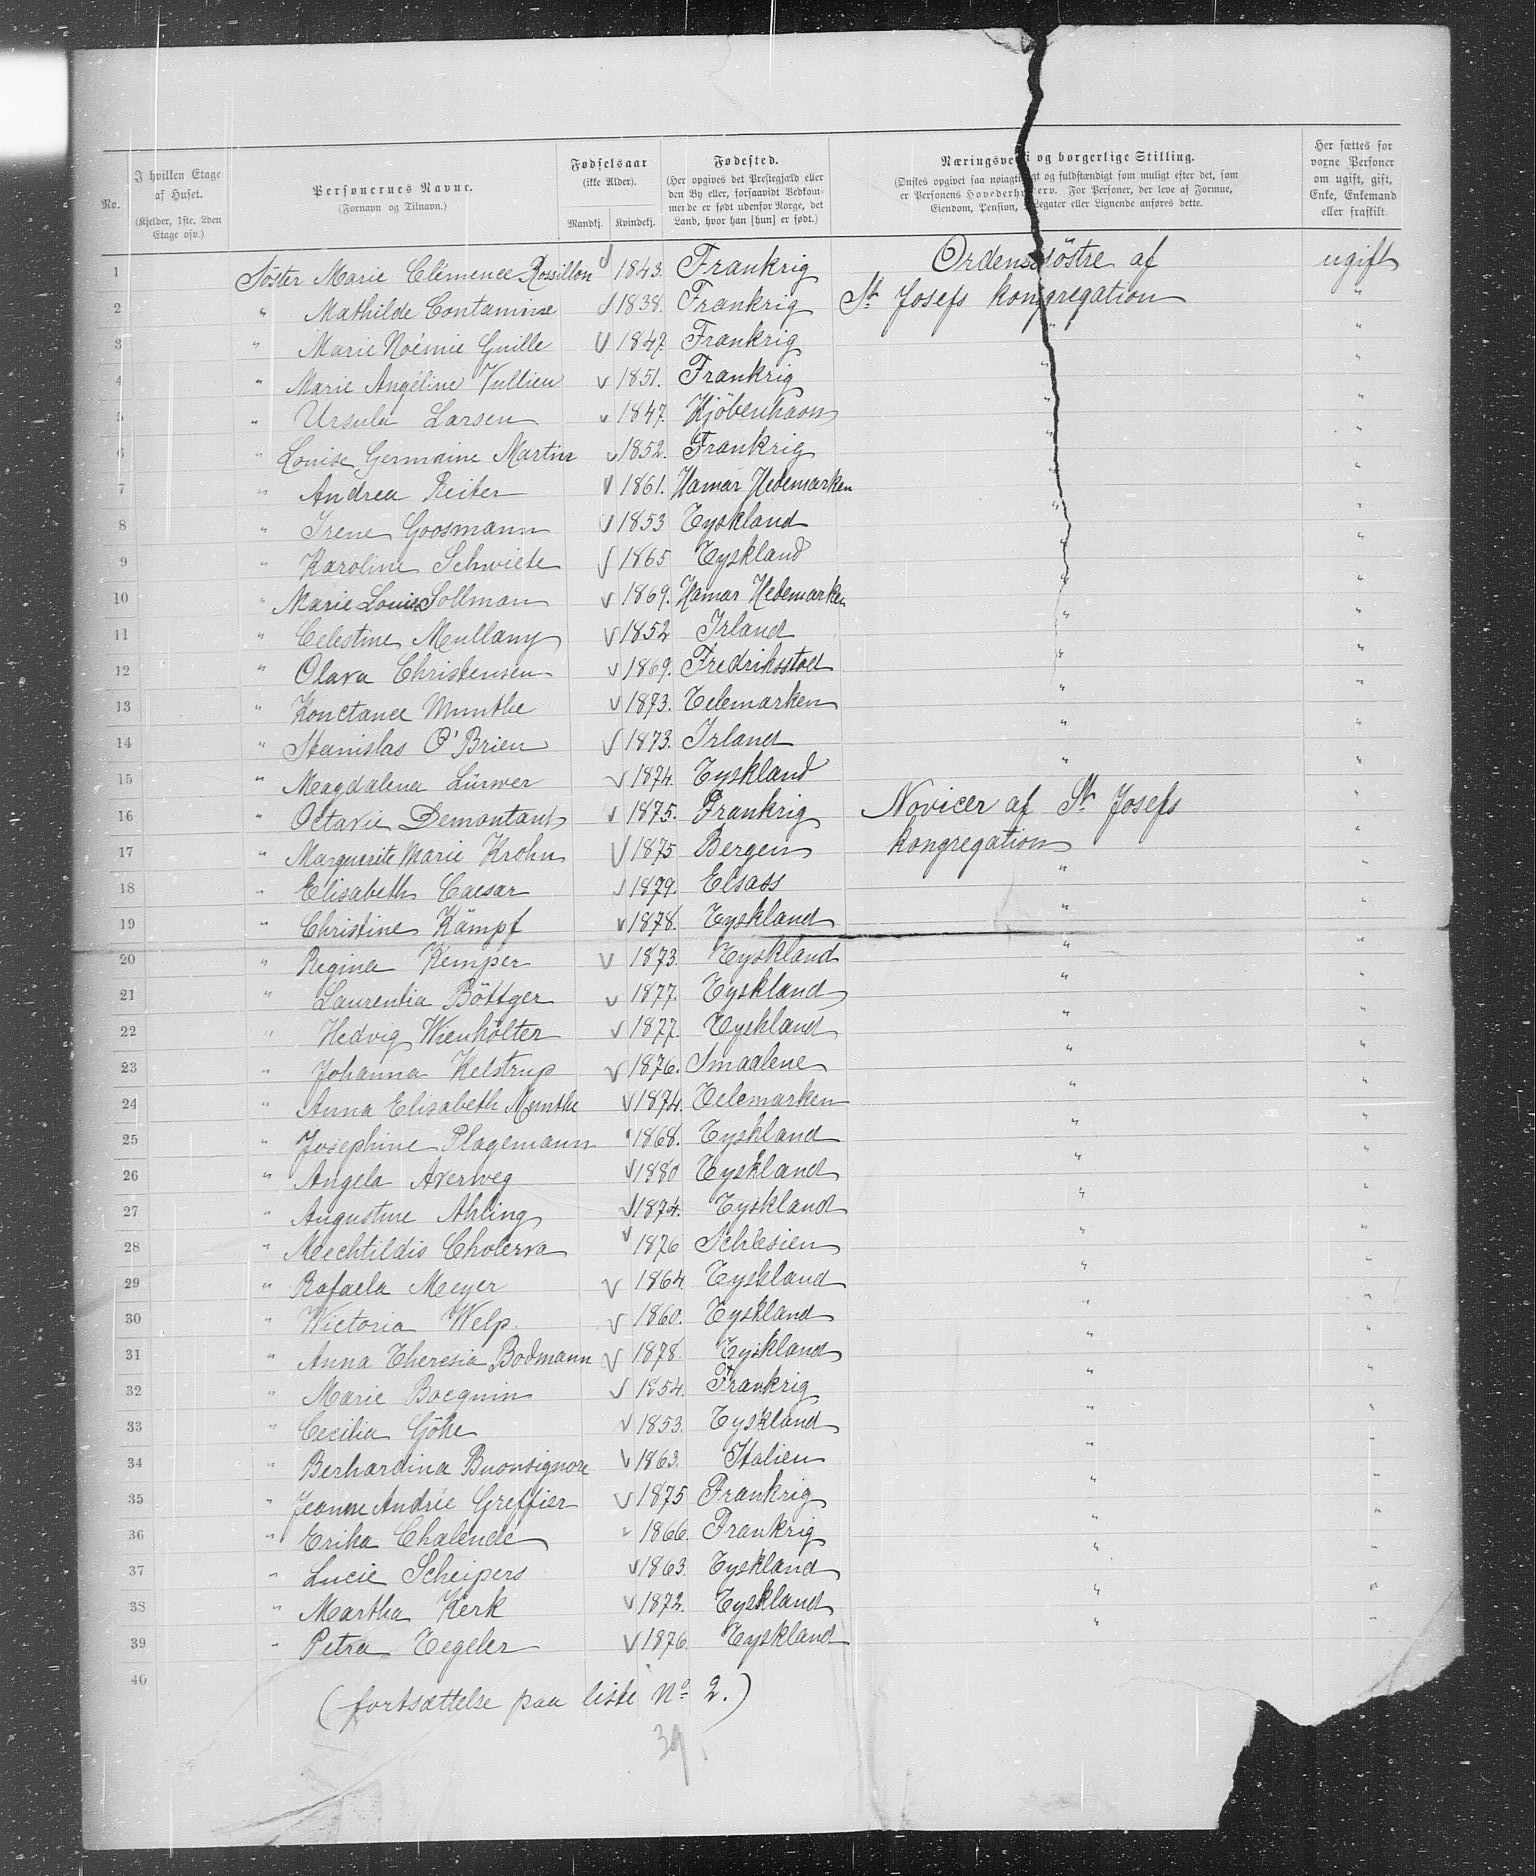 No.
I hvilken Etage af Huset. (Kjelder, 1ste, 2den Etage osv.)
Personernes Navne. (Fornavn og Tilnavn.)
Fødselsaar (ikke Alder). Mandkj. Kvindekj.
Fødested. (Her opgives det Prestegjæld eller den By eller, forsaavidt Vedkommerde er født udenfor Norge, det Land, hvor han [hun] er født.)
og borgerlige Stilling. (Ønskes opgivet saa og fuldstændigt som muligt efter det, som er Personens For Personer, der leve af Formue, Eiendom, Pension, Legater eller Lignende anføres dette.
Her sættes for voxne Personer om ugift, gift, Enke, Enkemand eller fraskilt.
1 Söster Marie Clémence Rossillon 1843. Frankrig Ordenssöstre af ugift
2 " Mathilde Contamine 1838. Frankrig St Josefs kongregation "
3 " Marie Noémie Guille 1847. Frankrig " "
4 " Marie Angéline Vullieu 1851. Frankrig " "
5 " Ursula Larsen 1847. Kjöbenhavn " "
6 " Louise Germaine Martin 1852. Frankrig " "
7 " Andrea Reiter 1861. Hamar Hedemarken " "
8 " Irene Goosmann 1853 Tyskland " "
9 " Karoline Schwiete 1865 Tyskland " "
10 " Marie Louise Sollman 1869. Hamar Hedemarken " "
11 " Celestine Mullany 1852 Irland " "
12 " Olava Christensen 1869. Fredriksstad " "
13 " Konctance Munthe 1873. Telemarken " "
14 " Stanislas O'Brien 1873. Irland " "
15 " Magdalena Lürwer 1874 Tyskland " "
16 " Octavie Demontant 1875. Frankrig Novicer af St Josefs "
17 " Marguerite Marie Krohn 1875 Bergen kongregation "
18 " Elisabeth Caesar 1879. Elsass " "
19 " Christine Kämpf 1878. Tyskland " "
20 " Regina Kemper 1873. Tyskland " "
21 " Laurentia Böttger 1877. Tyskland " "
22 " Hedvig Wienhölter 1877. Tyskland " "
23 " Johanna Kelstrup 1876. Smaalene " "
24 " Anna Elisabeth Munthe 1874. Telemarken " "
25 " Josephine Plagemann 1868. Tyskland " "
26 " Angela Averweg 1880 Tyskland " "
27 " Augustine Ahling 1874. Tyskland " "
28 " Mechtildis Cholerva 1876 Schlesien " "
29 " Rafaela Meyer 1864 Tyskland " "
30 " Victoria Welp. 1860. Tyskland " "
31 " Anna Theresia Bodmann 1878. Tyskland " "
32 " Marie Bocquin 1854. Frankrig " "
33 " Cecilia Göke 1853. Tyskland " "
34 " Berhardina Buonsignore 1863. Italien " "
35 " Jeanne Andrée Greffier 1875 Frankrig " "
36 " Erika Chalendé 1866. Frankrig " "
37 " Lucie Scheipers 1863. Tyskland " "
38 " Martha Kerk 1872. Tyskland " "
39 " Petra Tegeler 1876. Tyskland " "
40 (fortsættelse paa liste No 2.)
39